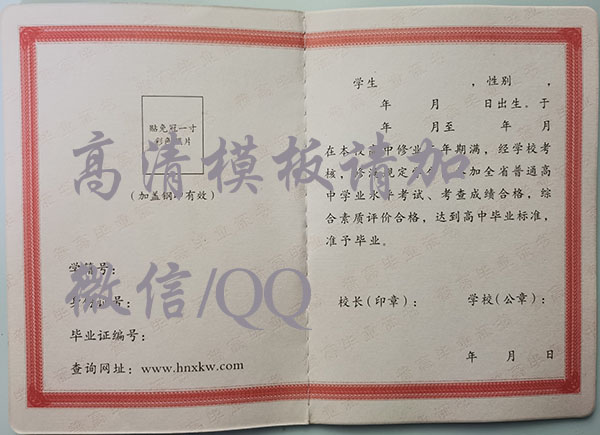 贴免冠一寸
彩色照片
(加盖钢印有效)
学籍号：
号：
毕业证编号：
查询网址：www.hnxkw.com
学生　　　，性别　，
年　月　日出生。于
年　月至　年　月
在本校高中修业三年期满，经学校考
核，修满规定学分，参加全省普通高
中学业水平考试、考查成绩合格，综
合素质评价合格，达到高中毕业标准，
准予毕业。
校长(印章)：　学校(公章)：
年　月　日
高清模板请加
微信/QQ